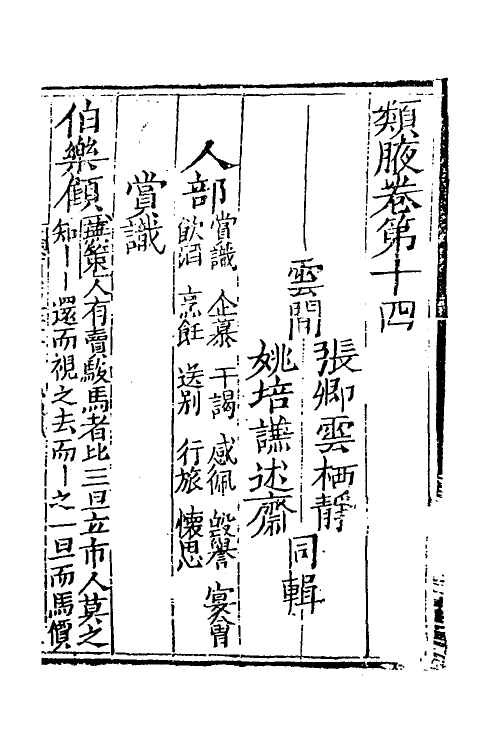 類腋卷第十四
雲間
張卿雲栖靜
姚培謙述齋
同輯
人部
賞識 企慕 干謁 感佩 毀譽 宴會
飲酒 烹飪 送别 行旅 懷思
賞識
伯樂顧
策人有賣駿馬者比三旦立市人莫之
知〡〡還而視之去而〡之一旦而馬價